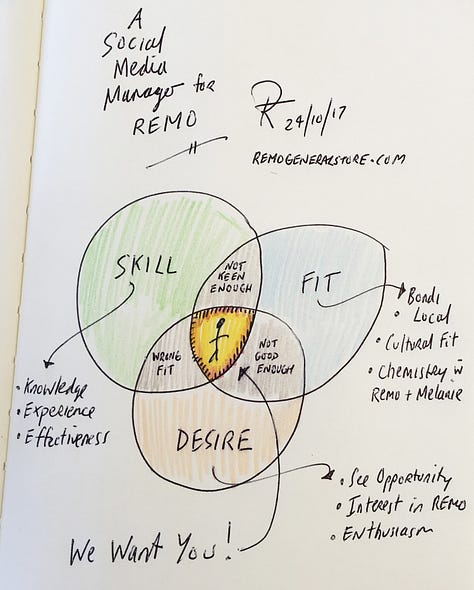 A
Social
Media
Manager for
REMO
R 24/10/17
REMOGENERALSTORE.COM
SKILL
NOT
KEEN
ENOUGH
FIT
WRONG
FIT
NOT
GOOD
ENOUGH
DESIRE
• Bondi
• Local
• Cultural Fit
• Chemistry w
Remo + Melanie
• Knowledge
• Experience
• Effectiveness
• See Opportunity
• Interest in REMO
• Enthusiasm
We Want You!